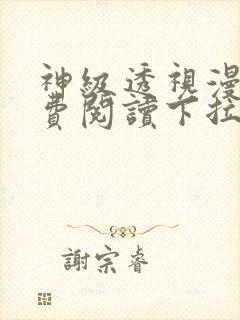 神級透視漫
費閱讀下拉
謝宗睿